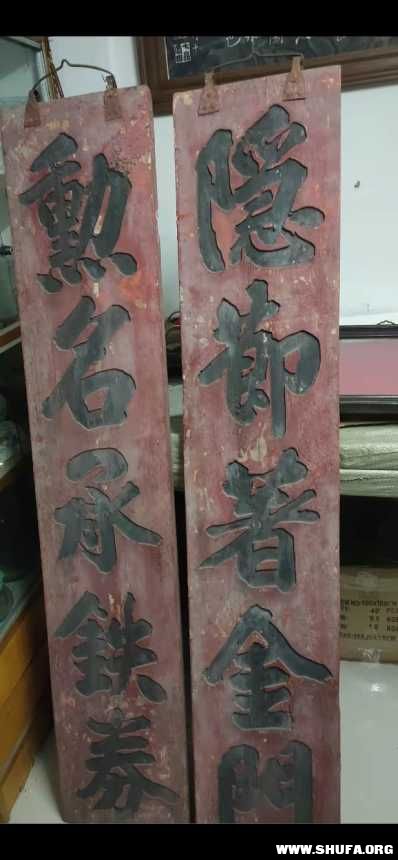 隐節著金門
勳名承鉄券
WWW.SHUFA.ORG